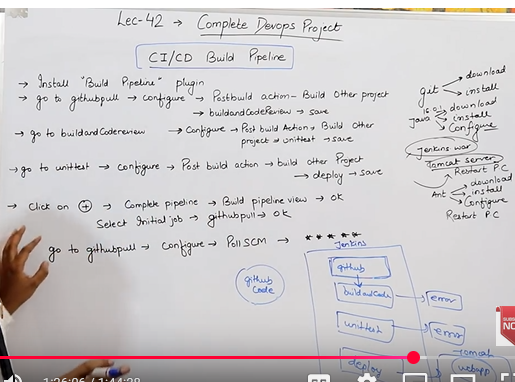 Lec-42 → Complete Devops Project
CI/CD Build Pipeline
→ Install "Build Pipeline" plugin
→ go to githubpull → configure → Postbuild action - Build Other project
→ buildandCodeReview → save
→ go to buildandCodereview → Configure → Post build Action → Build Other
project → unittest → save
→ go to unittest → configure → Post build action → build other Project
→ deploy → save
→ Click on + → Complete pipeline → Build pipeline view → OK
Select Initial job → githubpull → OK
go to githubpull → Configure → Poll SCM → * * * * *
git → download
→ install
Java 16.0.1 → download
→ install
→ Configure
Jenkins war
Tomcat server
Restart PC
Ant → download
→ install
→ Configure
Restart PC
Jenkins
github
Code
github
buildandCode
error
unittest
error
deploy
tomcat
webapp
1:26:06 / 1:44:28
CC